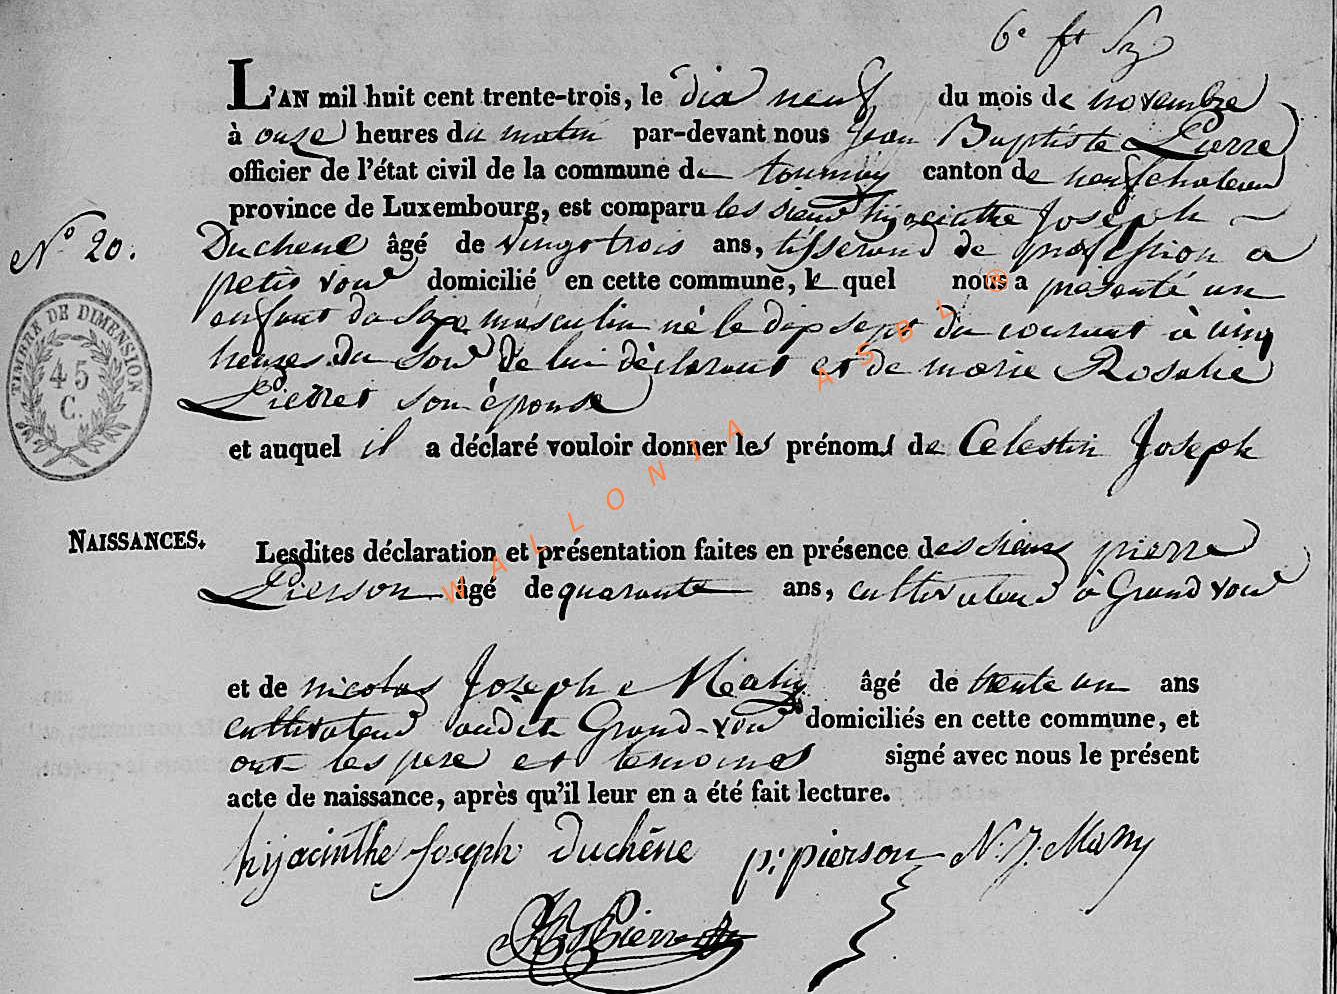 6e ft
L'AN mil huit cent trente-trois, le dix neuf du mois de novembre
à onze heures du matin par-devant nous Jean Baptiste Pierre
officier de l'état civil de la commune de tournay canton de neufchateau
province de Luxembourg, est comparu les sieur hyjacinthe Joseph
N° 20.
Duchene âgé de vingt trois ans, tisserand de profession a
petit voir domicilié en cette commune, le quel nous a présenté un
enfant du sexe masculin né le dix sept du courant à cinq
heures du soir de lui déclarant et de marie Rosalie
Pierret son épouse
TIMBRE DE DIMENSION
45
C.
et auquel il a déclaré vouloir donner les prénoms de Celestin Joseph
NAISSANCES.
Lesdites déclaration et présentation faites en présence des sieurs pierre
Pierson âgé de quarante ans, cultivateur à Grand voir
et de nicolas Joseph âgé de trente un ans
cultivateur audit Grand-voir domiciliés en cette commune, et
ont les pere et temoins signé avec nous le présent
acte de naissance, après qu'il leur en a été fait lecture.
hijacinthe Joseph Duchêne p: pierson N. J. Mathy
Pierre
WALLONIA ASBL ®